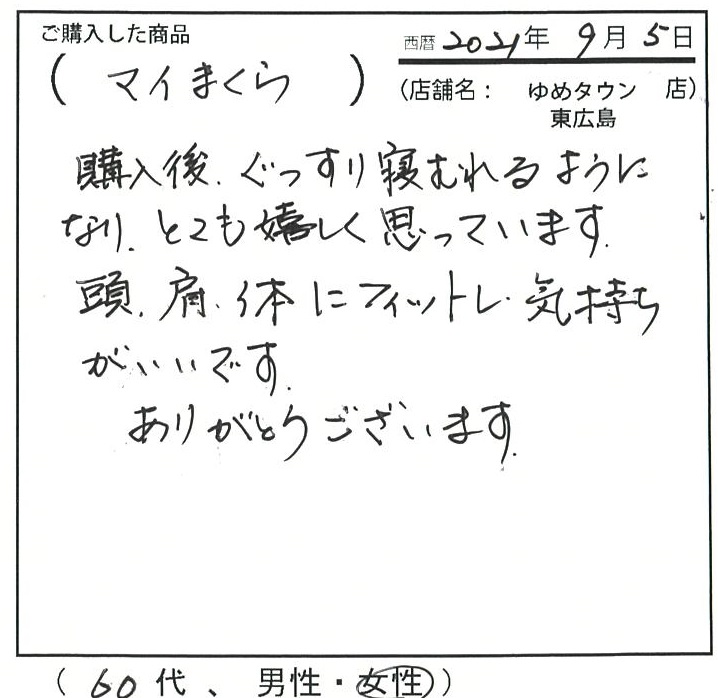 ご購入した商品
西暦 2021年 9月 5日
( マイまくら )
(店舗名: ゆめタウン 店)
東広島
購入後、ぐっすり寝むれるように
なり、とても嬉しく思っています。
頭、肩、体にフィットし、気持ち
がいいです。
ありがとうございます。
( 60代 、 男性・女性 )